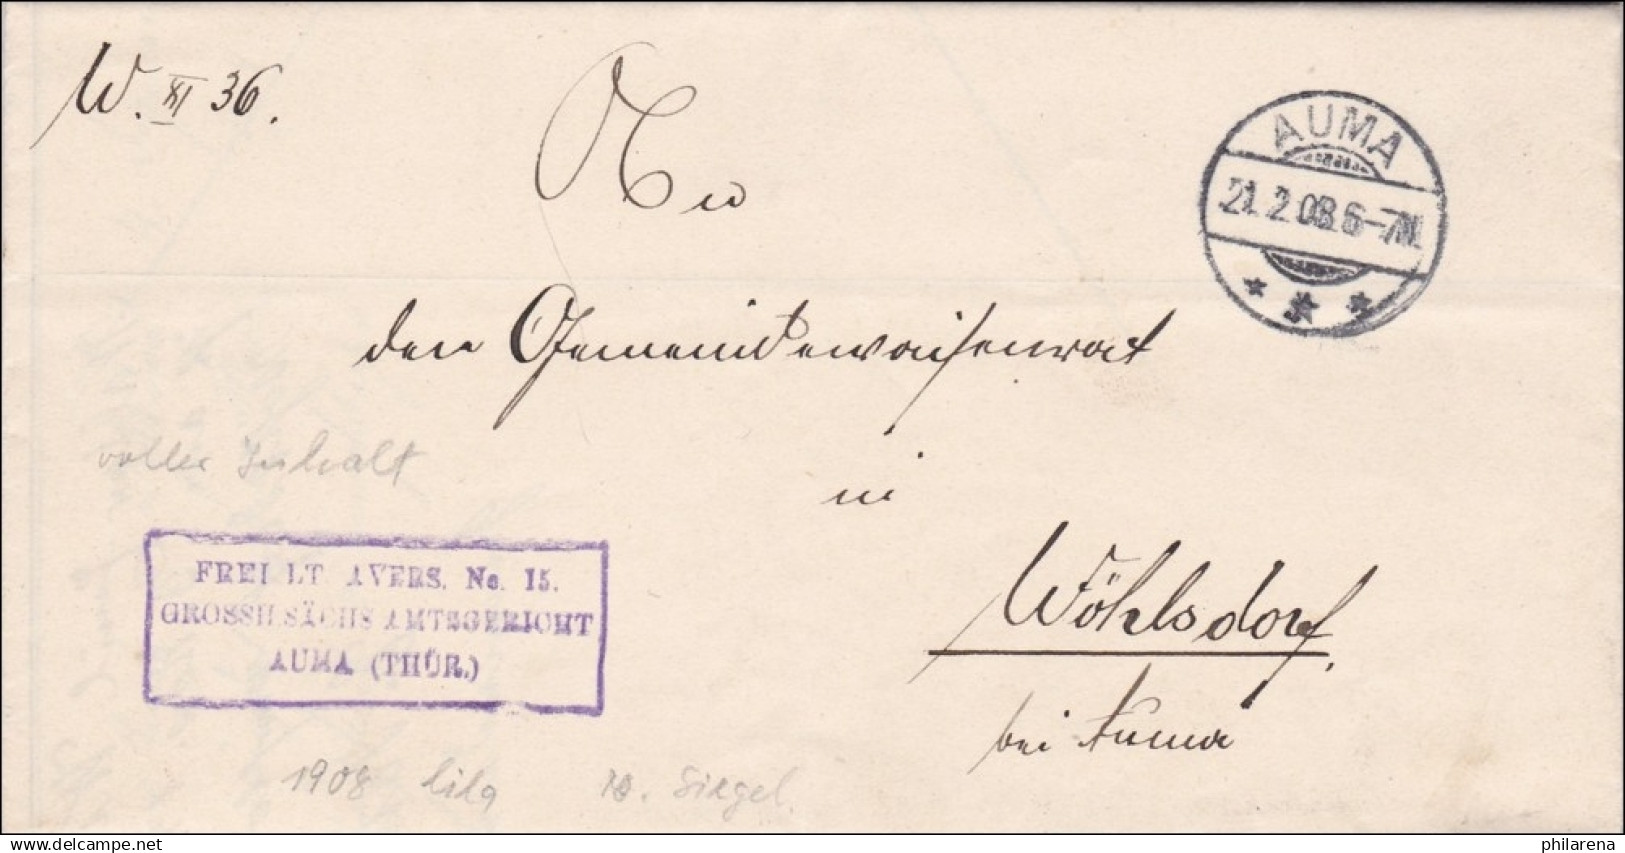 W. XI 36.
An
AUMA
21.2.08.6-7N.
den Gemeindewaisenrat
voller Inhalt
in
FREI LT AVERS. No. 15.
GROSSH SÄCHS AMTSGERICHT
AUMA (THÜR.)
Wöhlsdorf.
bei Auma
1908 lila
Siegel.
www.delcampe.net
philarena